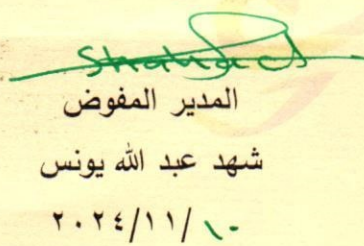 Shahad
المدير المفوض
شهد عبد الله يونس
٢٠٢٤/١١/١٠